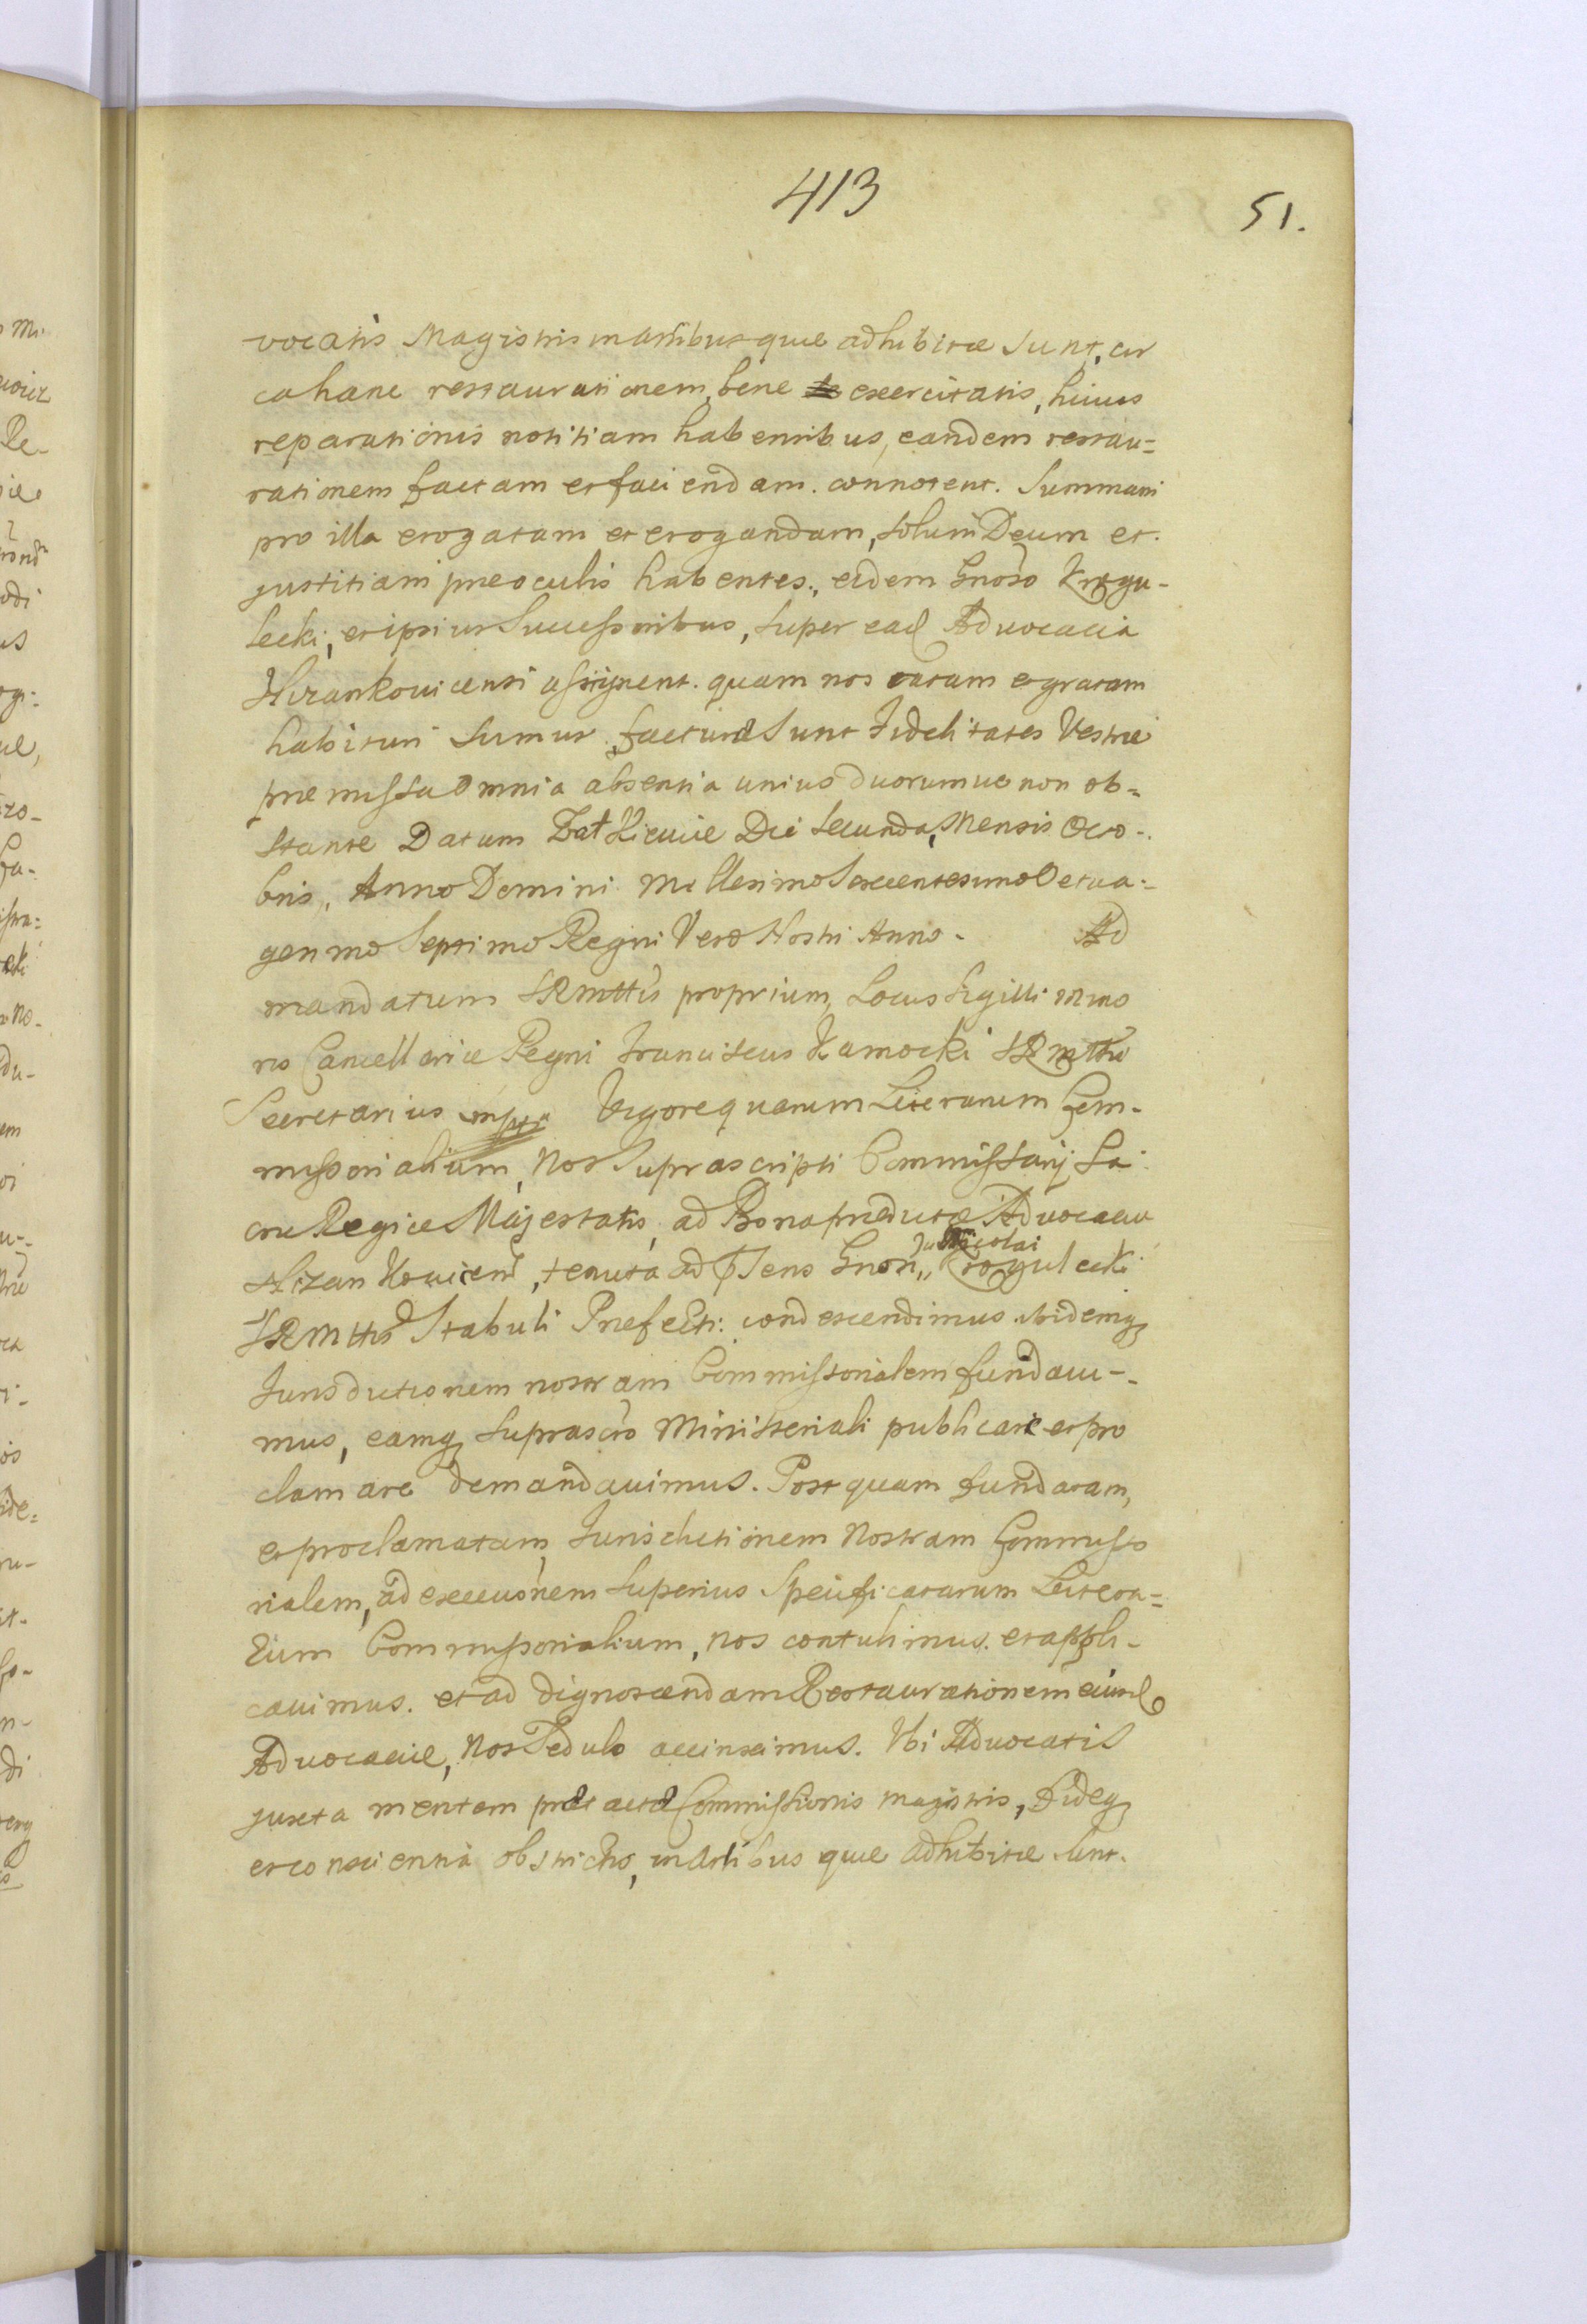 413
51.
vocatis Magistris in artibus quae adhibitae sunt, cir
ca hanc restaurationem, bene exercitatis, huius
reparationis notitiam habentibus, eandem restau=
rationem factam et faciendam. connotent. Summam
pro illa erogatam et erogandam, solum Deum et.
justitiam prae oculis habentes., eidem Gnoso Krogu-
lecki, et ipsius Successoribus, super ead Advocacia
Hizankouicensi assignent. quam nos ratam et gratam
habituri sumus. facturae sunt Fidelitates Vestrae
praemissa omnia absentia unius duorumue non ob=
stante Datum Die Secunda, Mensis Octo-.
bris, Anno Domini Millesimo Sexcentesimo Octua-
gesimo Septimo Regni Vero Nostri Anno - Ad
mandatum SRMttis proprium, Locus Sigilli mino
ris Cancellariae Regni Franciscus Kamocki SRMttis
Secretarius mpp Vigore quarum Literarum Com-
missorialium, Nos Suprascripti Commissarij Sa
crae Regiae Majestatis, ad Bona praedictae Advocaciae
Hizankouicens, tenuta ad Gnosi Krogulecki
Nicolai
SRMttis Stabuli Praefecti: condescendimus ibidemq
Jurisdictionem nostram Commissorialem fundaui-.
mus, eamq suprascto Ministeriali publicare et pro
clamare demandauimus. Post quam fundatam,
et proclamatam Jurisdictionem Nostram Commisso
rialem, ad executionem superius Specificatarum Litera=
rum Commissorialium, nos contulimus. et appli-
cauimus. et ad dignoscendam Restaurationem eiusd
Advocaciae, nos Sedulo accinximus. Ubi Advocatis
juxta mentem praetactae Commissionis magistris, fideq
et conscientia obstrictis, in Artibus quae adhibitae sunt.